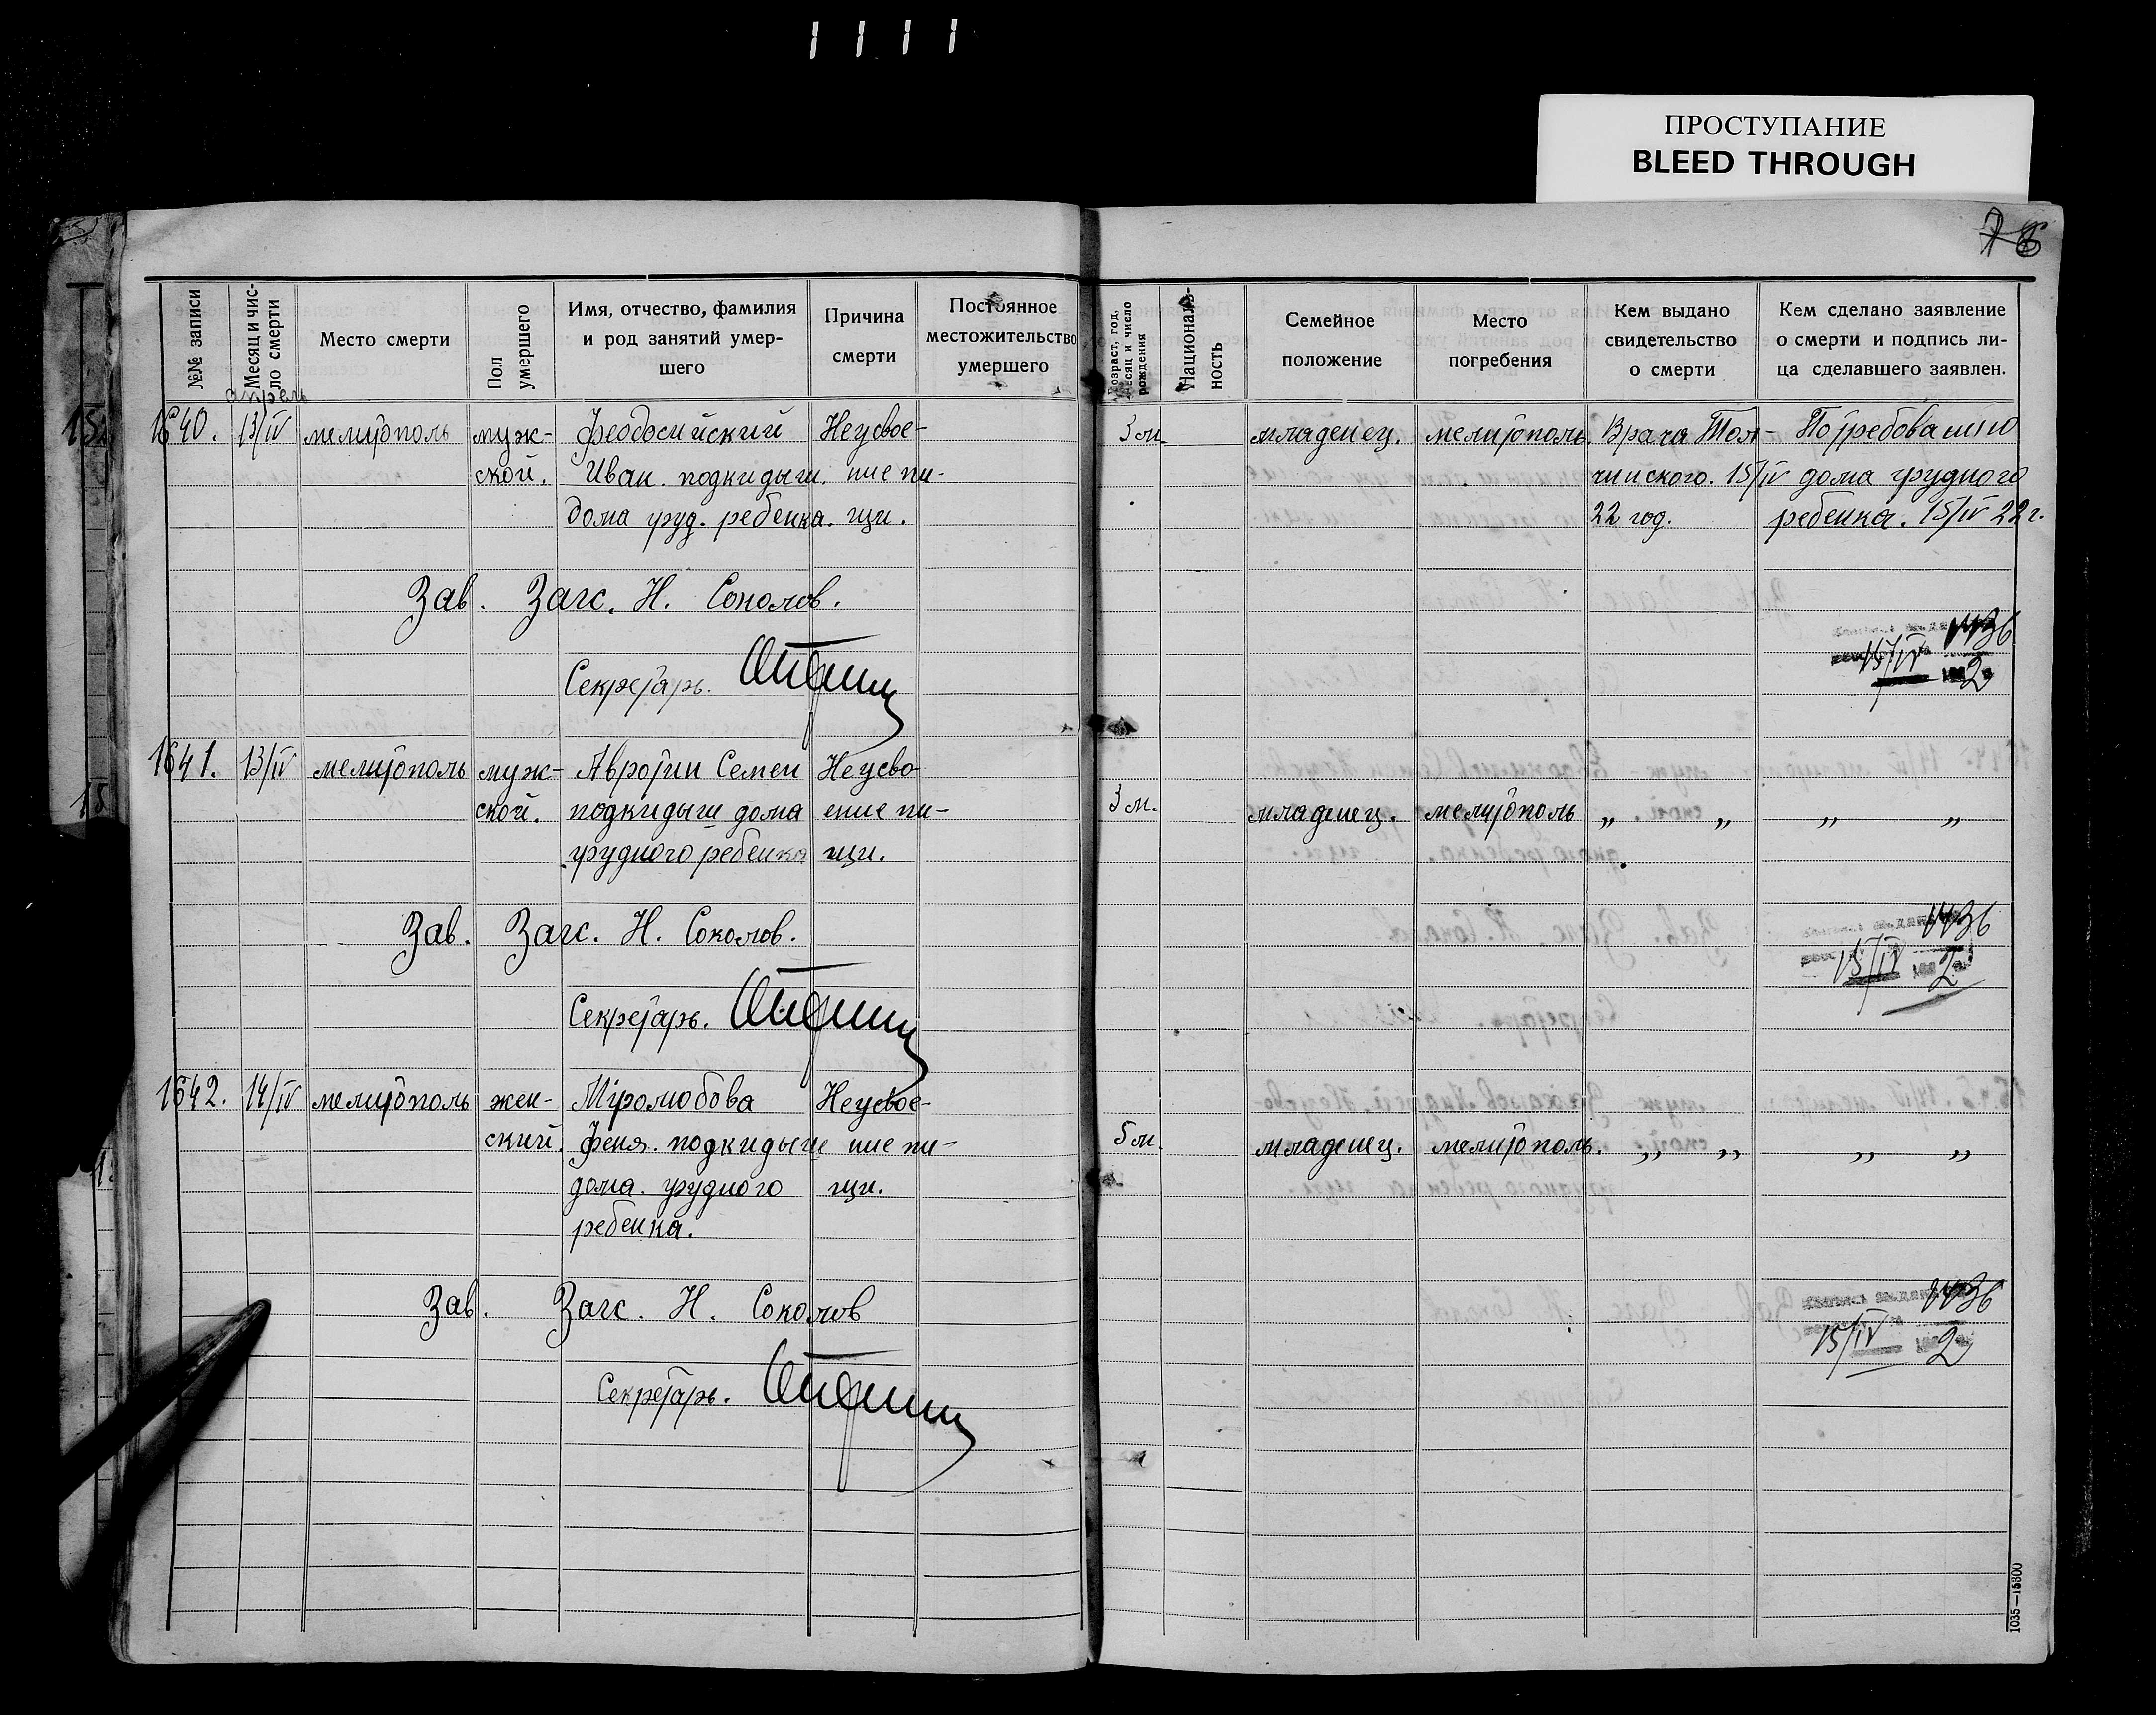 ПРОСТУПАНИЕ
BLEED THROUGH
78
№№ записи
Месяц и число смерти
Место смерти
Пол умершего
Имя, отчество, фамилия и род занятий умершего
Причина смерти
Постоянное местожительство умершего
Возраст, год, месяц и число рождения
Националь-ность
Семейное положение
Место погребения
Кем выдано свидетельство о смерти
Кем сделано заявление о смерти и подпись ли-ца сделавшего заявлен.
апрель
1640. 13/IV мелитополь муж- Феодосийский Неусвое- 3 м. младенец. мелитополь. Врача Тол- По требованию
ской. Иван. подкидыш. ние пи- чинского. 15/IV дома грудного
дома груд. ребенка. щи. 22 год. ребенка. 15/IV 22 г.
Зав. Загс. Н. Соколов.
Секретарь.
1436
15/IV 2
1641. 13/IV мелитополь муж- Авротин Семен Неусво-
ской. подкидыш дома ение пи- 3 м. младенец. мелитополь „ „ „ „
грудного ребенка щи.
Зав. Загс. Н. Соколов.
1436
15/IV 2
Секретарь.
1642. 14/IV мелитополь жен- Міролюбова Неусвое-
ский. Феня. подкидыш ние пи- 5 м. младенец. мелитополь. „ „ „ „
дома. грудного щи.
ребенка.
Зав. Загс. Н. Соколов
1436
15/IV 2
Секретарь.
1035—15300